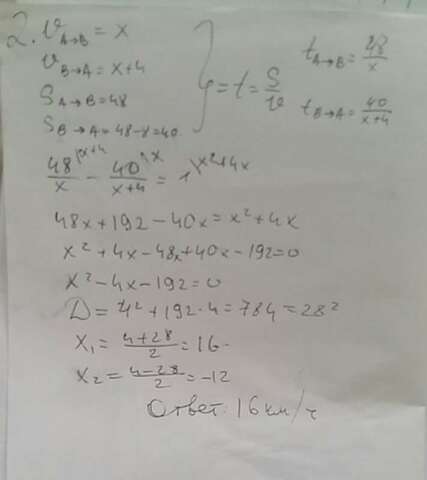 2. V A→B = x
V B→A = x+4
S A→B = 48
S B→A = 48-8=40
} = t = S/v
t A→B = 48/x
t B→A = 40/(x+4)
48/x |x+4 - 40/(x+4) |x = 1 |x²+4x
48x+192-40x=x²+4x
x²+4x-48x+40x-192=0
x²-4x-192=0
D=4²+192·4=784=28²
x₁=(4+28)/2=16
x₂=(4-28)/2=-12
Ответ: 16км/ч